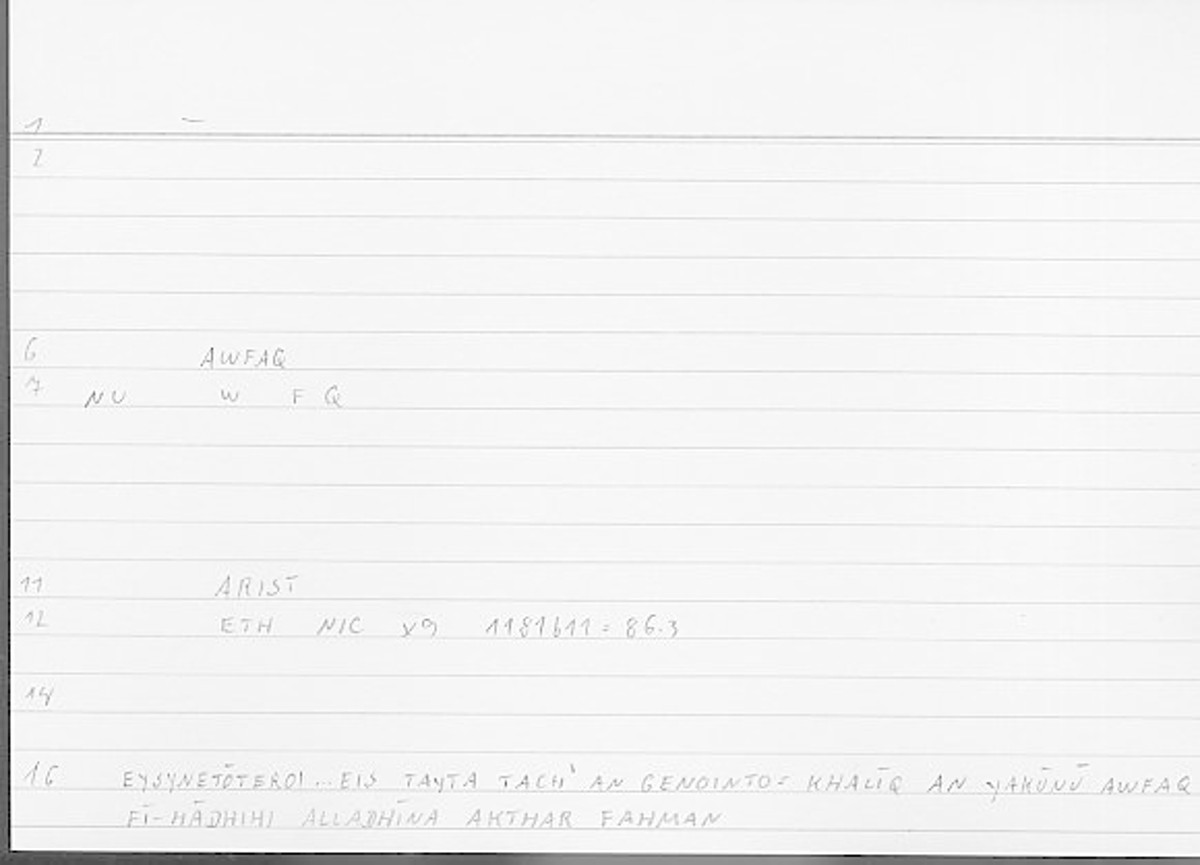 1 –
2
6 AWFAQ
7 NU W F Q
11 ARIST
12 ETH NIC X9 1181b11 = 86.3
14
16 EYSYNETŌTEROI...EIS TAYTA TACH' AN GENOINTO = KHALĪQ AN YAKŪNŪ AWFAQ
FĪ-HĀDHIHI ALLADHĪNA AKTHAR FAHMAN